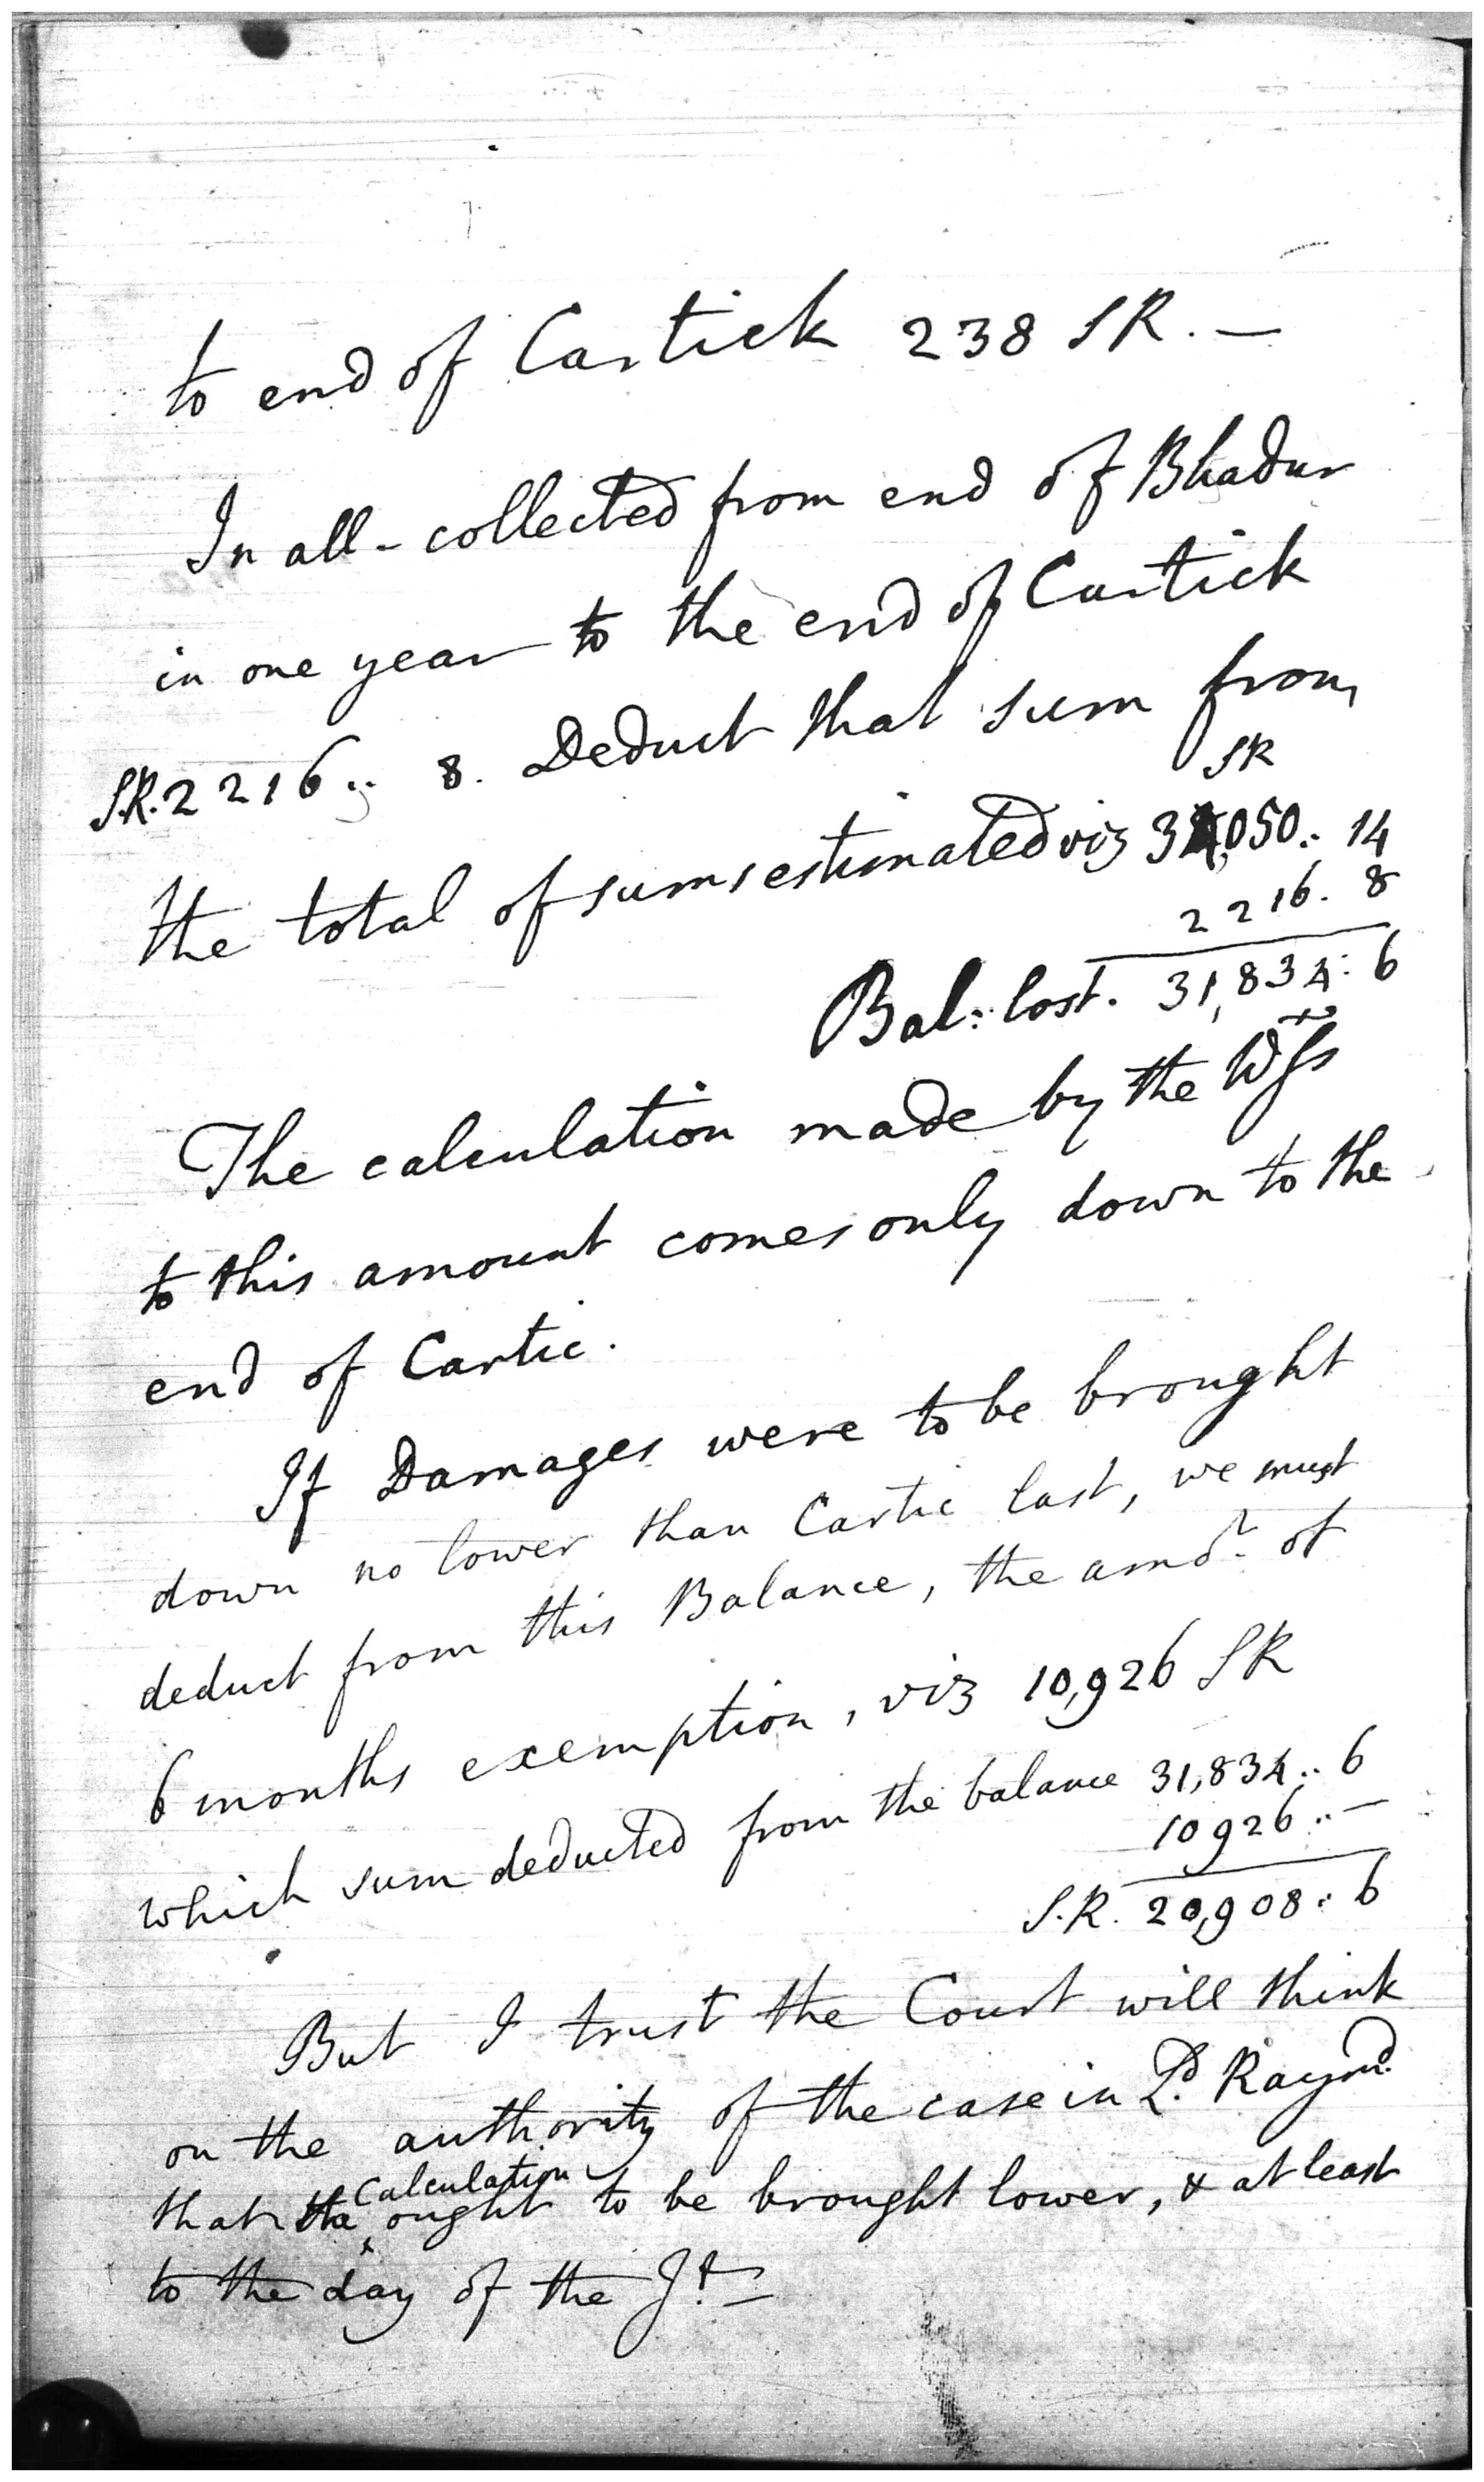 to end of Cartick 238 SR. —
In all - collected from end of Bhadur
in one year to the end of Cartick
S.R. 2216 .. 8. Deduct that sum from
SR
the total of sums estimated viz 34,050 .. 14
2216. 8
Bal: lost. 31,834: 6
The calculation made by the Wss
to this amount comes only down to the
end of Cartic.
If Damages were to be brought
down no lower than Cartic last, we must
deduct from this Balance, the amot. of
6 months exemption, viz 10,926 SR
which sum deducted from the balance 31,834 .. 6
10926 .. —
S.R. 20,908 : 6
But I trust the Court will think
on the authority of the case in Ld. Raymd.
calculation
that the ‸ ought to be brought lower, & at least
to the day of the Jt. —